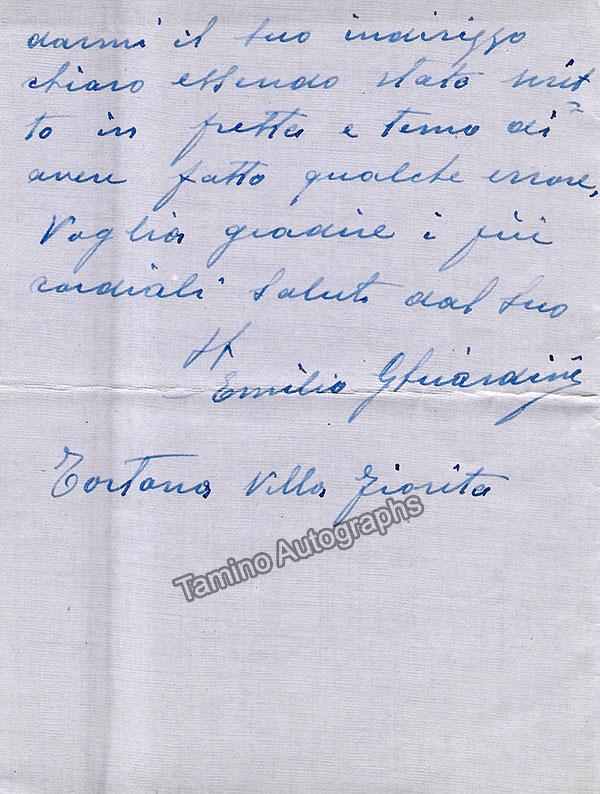 darmi il suo indirizzo
chiaro essendo stato scrit
to in fretta e temo di
avere fatto qualche errore,
Voglia gradire i più
cordiali saluti dal suo
Emilio Ghirardini
Tortona Villa Fiorita
Tamino Autographs